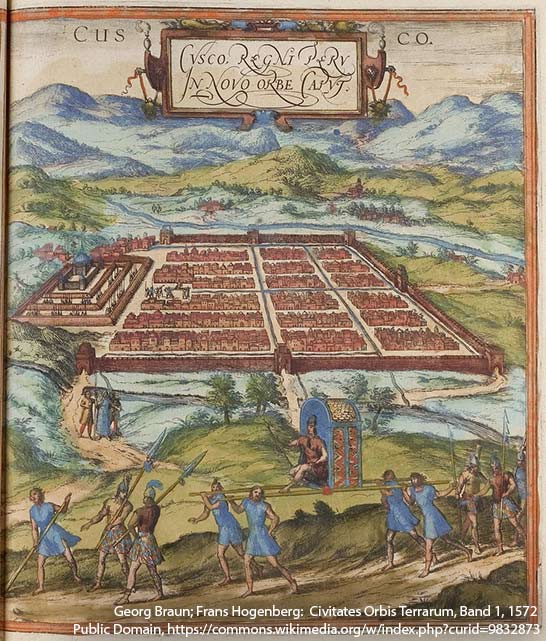 CUSCO.
CVSCO, REGNI PERV
IN NOVO ORBE CAPVT.
Georg Braun; Frans Hogenberg: Civitates Orbis Terrarum, Band 1, 1572
Public Domain, https://commons.wikimedia.org/w/index.php?curid=9832873